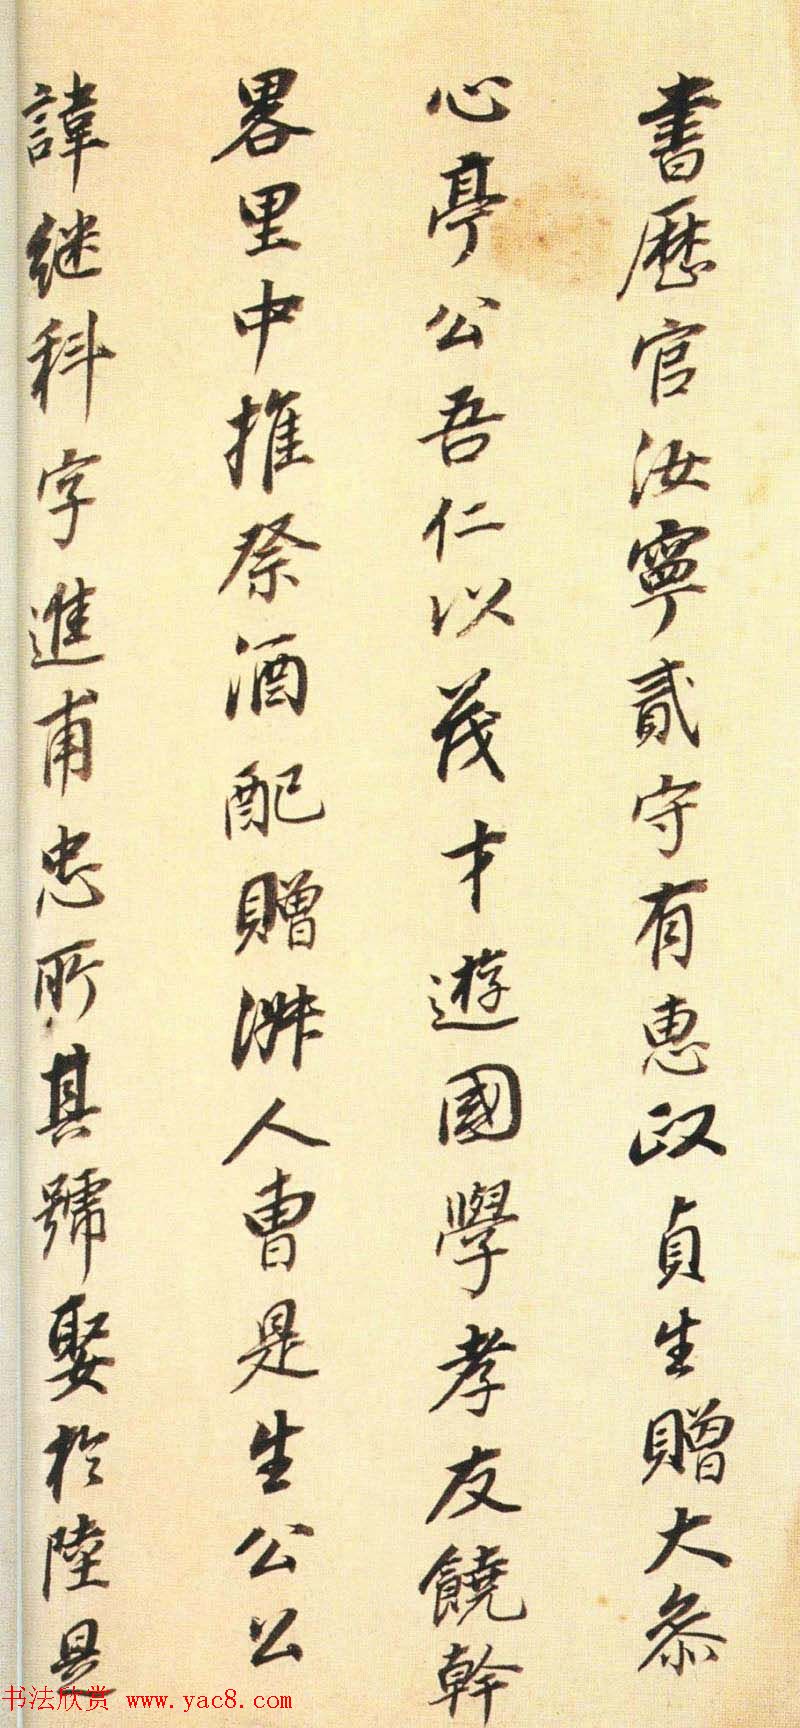 書歷官汝寧貳守有惠政貞生贈大叅
心亭公吾仁以茂才遊國學孝友饒幹
畧里中推祭酒配贈淋人曹是生公公
諱継科字進甫忠所其號娶於陸是
书法欣赏 www.yac8.com